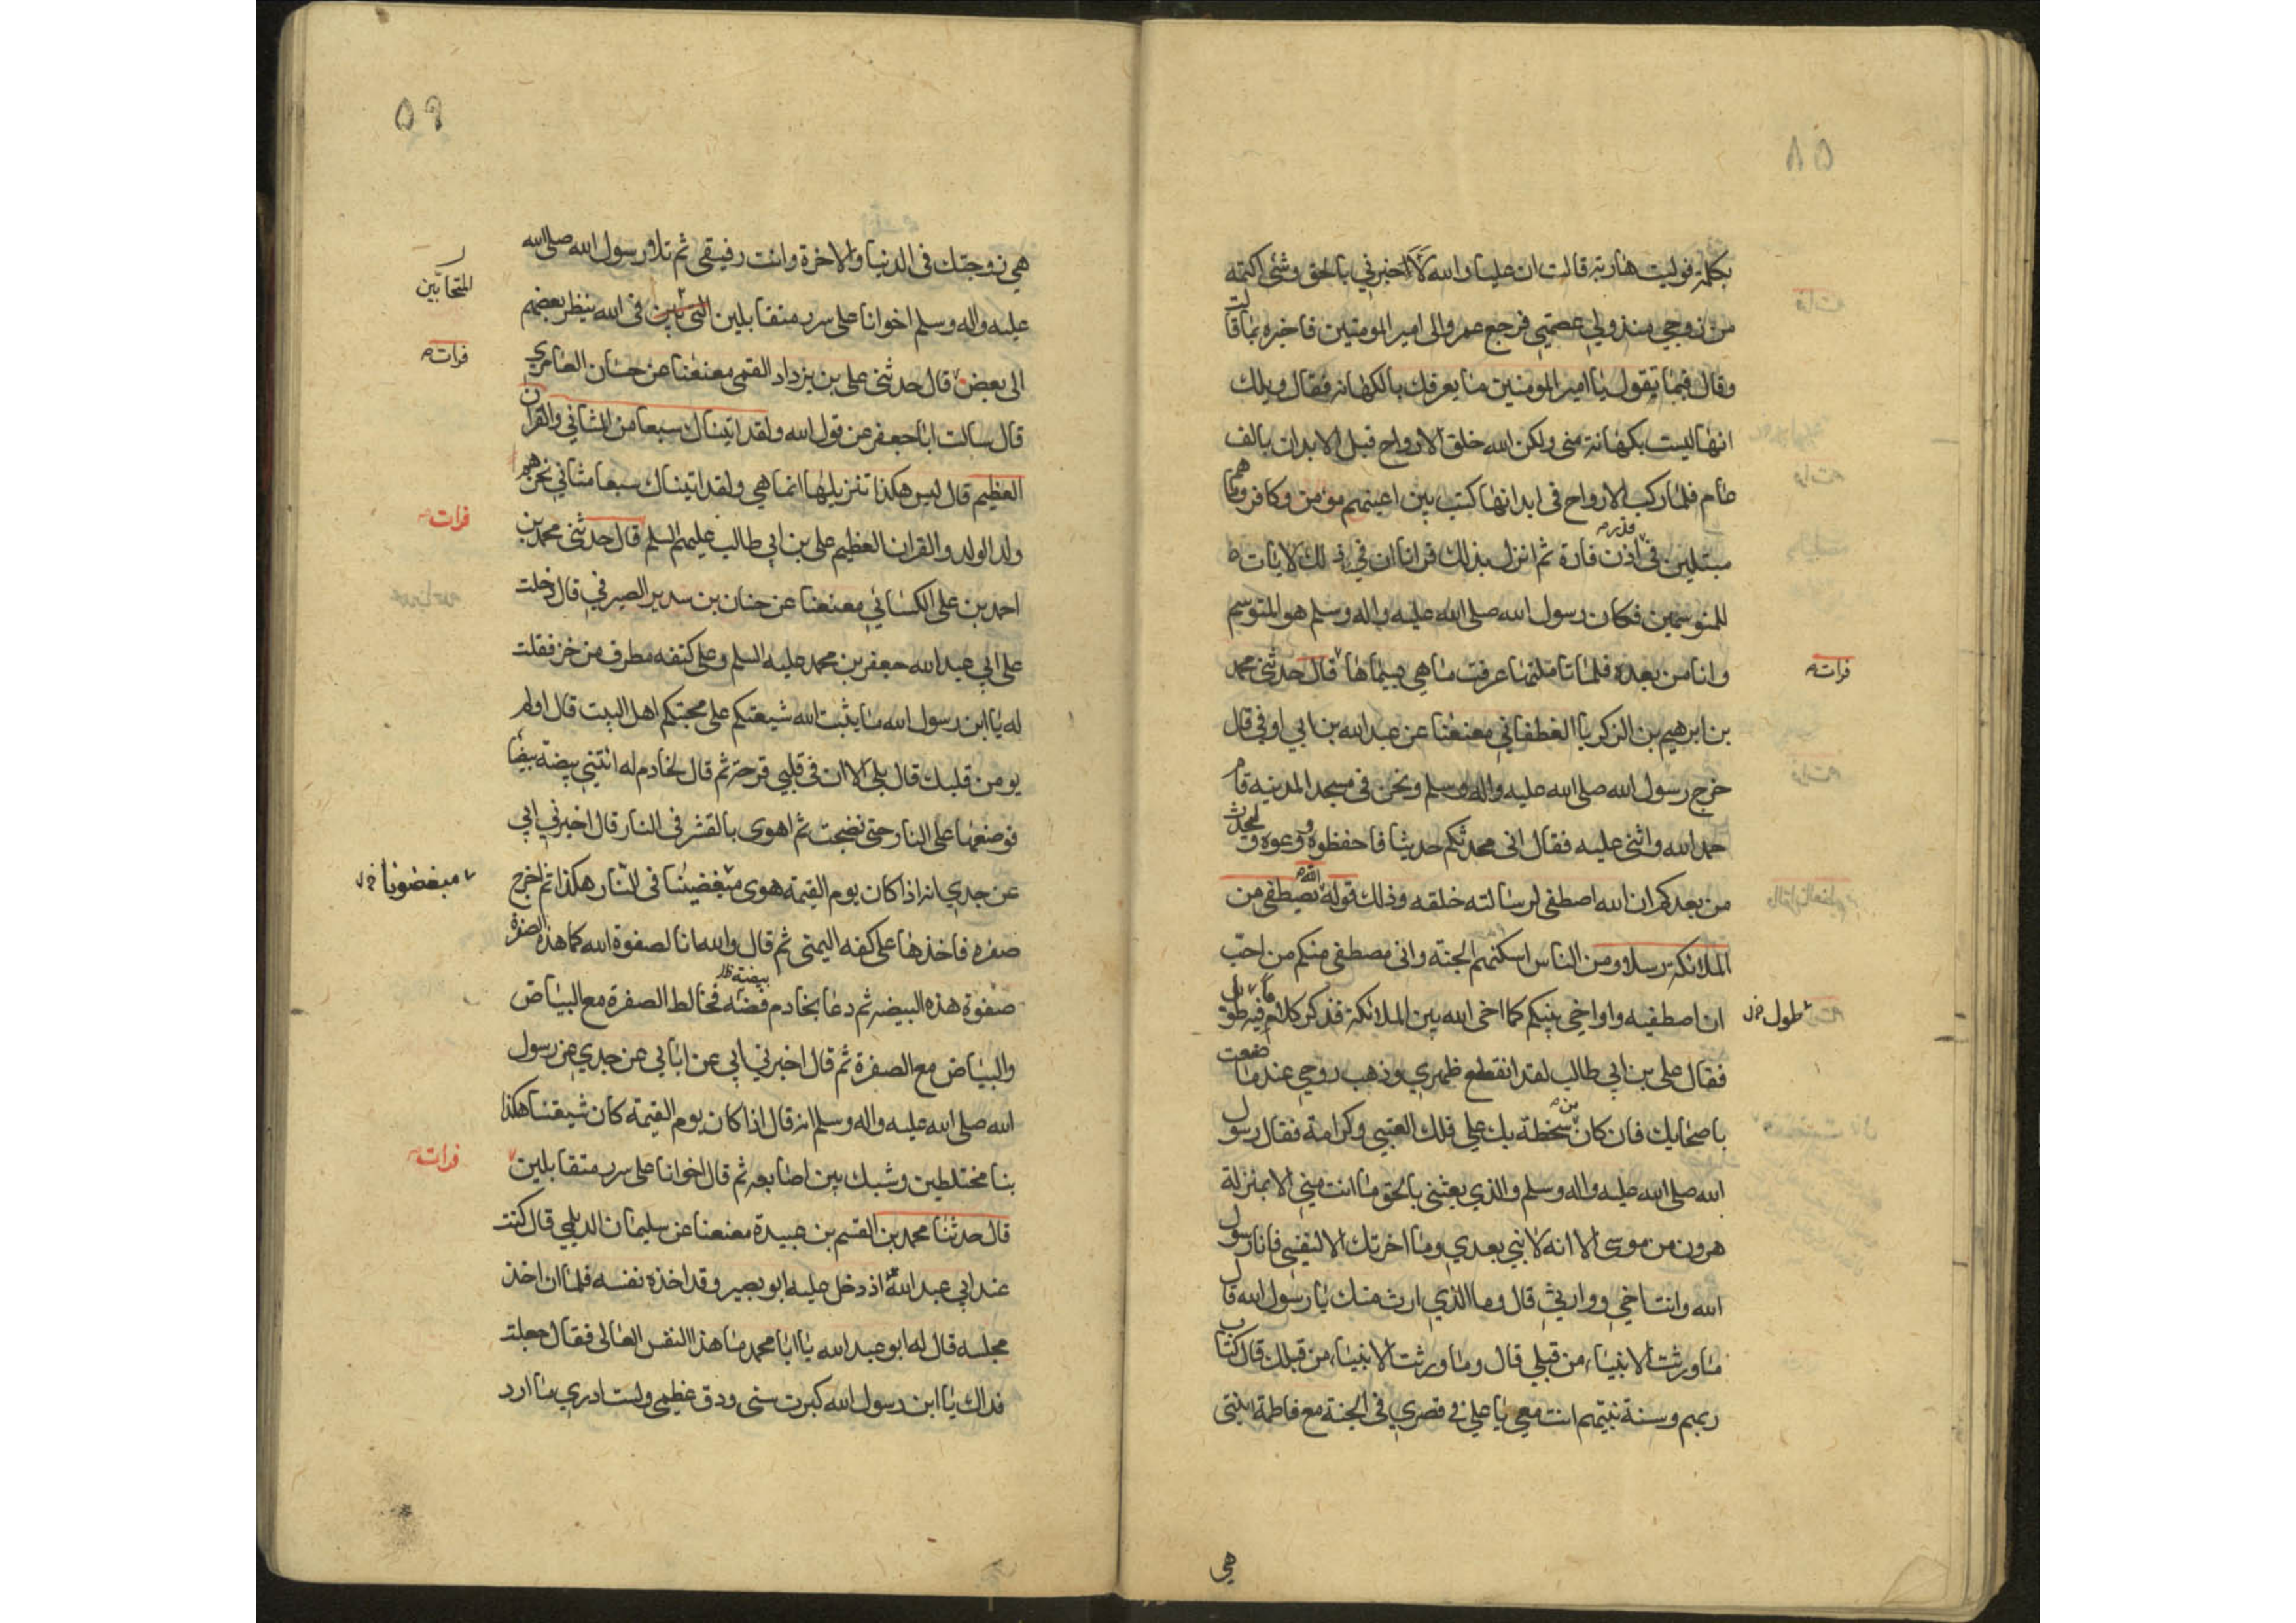 ٨٥
بكلمة فوليت هاربة قالت ان عليا والله اخبرني بالحق وشئ اكتمه
من زوجي منذ ولي عصمتي فرجع عمرو الى امير المومنين فاخبره بما قالت
وقال فيما يقول يا امير المومنين ما يعرفك بالكهانة فقال ويلك
انها ليست بكهانة مني ولكن الله خلق الارواح قبل الابدان بالف
عام فلما ركب الارواح في ابدانها كتب بين اعينهم مومن وكافر وما هم
مبتلين في اذن فارة ثم انزل بذلك قرانا ان في ذلك لايات
للمتوسمين فكان رسول الله صلى الله عليه واله وسلم هو المتوسم
وانا من بعده فلما تاملتها عرفت ما هي بسيماها قال حدثني محمد
فرات
بن ابرهيم بن الزكريا الغطفاني معنعنا عن عبد الله بن ابي اوفى قال
خرج رسول الله صلى الله عليه واله وسلم ونحن في مسجد المدينة قام
حمد الله واثنى عليه فقال اني محدثكم حديثا فاحفظوه وعوه وليحدث
من بعدكم ان الله اصطفى لرسالته خلقه وذلك قوله الله يصطفي من
الملائكة رسلا ومن الناس اسكنهم الجنة واني مصطفي منكم من احب
ان اصطفيه واواخي بينكم كما اخى الله بين الملائكة فذكر كلاما فيه طول
طول خ ل
فقال علي بن ابي طالب لقد انقطع ظهري وذهب روحي عند ما صنعت
باصحابك فان كان من سخطة بك علي فلك العتبى وكرامة فقال رسول
الله صلى الله عليه واله وسلم والذي بعثني بالحق ما انت مني الا بمنزلة
هرون من موسى الا انه لا نبي بعدي وما اخرتك الا لنفسي فانا رسول
الله وانت اخي ووارثي قال وما الذي ارث منك يا رسول الله قال
ما ورثت الانبياء من قبلي قال وما ورثت الانبياء من قبلك قال كتاب
ربهم وسنة نبيهم انت معي يا علي في قصري في الجنة مع فاطمة ابنتي
هي
٥٩
هي زوجتك في الدنيا والاخرة وانت رفيقي ثم تلا رسول الله صلى الله
عليه واله وسلم اخوانا على سرر متقابلين في الله ينظر بعضهم
المتحابين
الى بعض قال حدثني علي بن يزداد القمى معنعنا عن حسان العامري
فرات
قال سالت ابا جعفر عن قول الله ولقد اتيناك سبعا من المثاني والقران
العظيم قال ليس هكذا تنزيلها انما هي ولقد اتيناك سبعا مثاني نحن هم
ولد الولد والقران العظيم علي بن ابي طالب عليهم السلم قال حدثني محمد بن
فرات
احمد بن علي الكسائي معنعنا عن حنان بن سدير الصيرفي قال دخلت
على ابي عبد الله جعفر بن محمد عليه السلم وعلى كتفه مطرف من خز فقلت
له يا ابن رسول الله ما يثبت الله شيعتكم على محبتكم اهل البيت قال اولم
يومن قلبك قال بلى الا ان في قلبي قرحة ثم قال لخادم له ائتني ببيضة بيضا
فوضعها على النار حتى نضجت ثم اهوى بالقشر في النار قال اخبرني ابي
عن جدي انه اذا كان يوم القيمة هوى مبغضينا في النار هكذا ثم اخرج
مبغضونا خ ل
صفره فاخذها على كفه اليمنى ثم قال والله انا لصفوة الله كما هذه الصفرة
صفوة هذه البيضه ثم دعا بخاتم فضه فخالط الصفرة مع البياض
والبياض مع الصفرة ثم قال اخبرني ابي عن ابائي عن جدي عن رسول
الله صلى الله عليه واله وسلم انه قال اذا كان يوم القيمة كان شيعتنا هكذا
بنا مختلطين وشبك بين اصابعه ثم قال اخوانا على سرر متقابلين
فرات
قال حدثنا محمد بن القسم بن عبيدة معنعنا عن سليمان الديلمي قال كنت
عند ابي عبد الله اذ دخل عليه ابو بصير وقد اخذه نفسه فلما ان اخذ
مجلسه قال له ابو عبد الله يا ابا محمد ما هذا النفس العالى فقال جعلت
فداك يا ابن رسول الله كبرت سنى ودق عظمى ولست ادري ما ارد